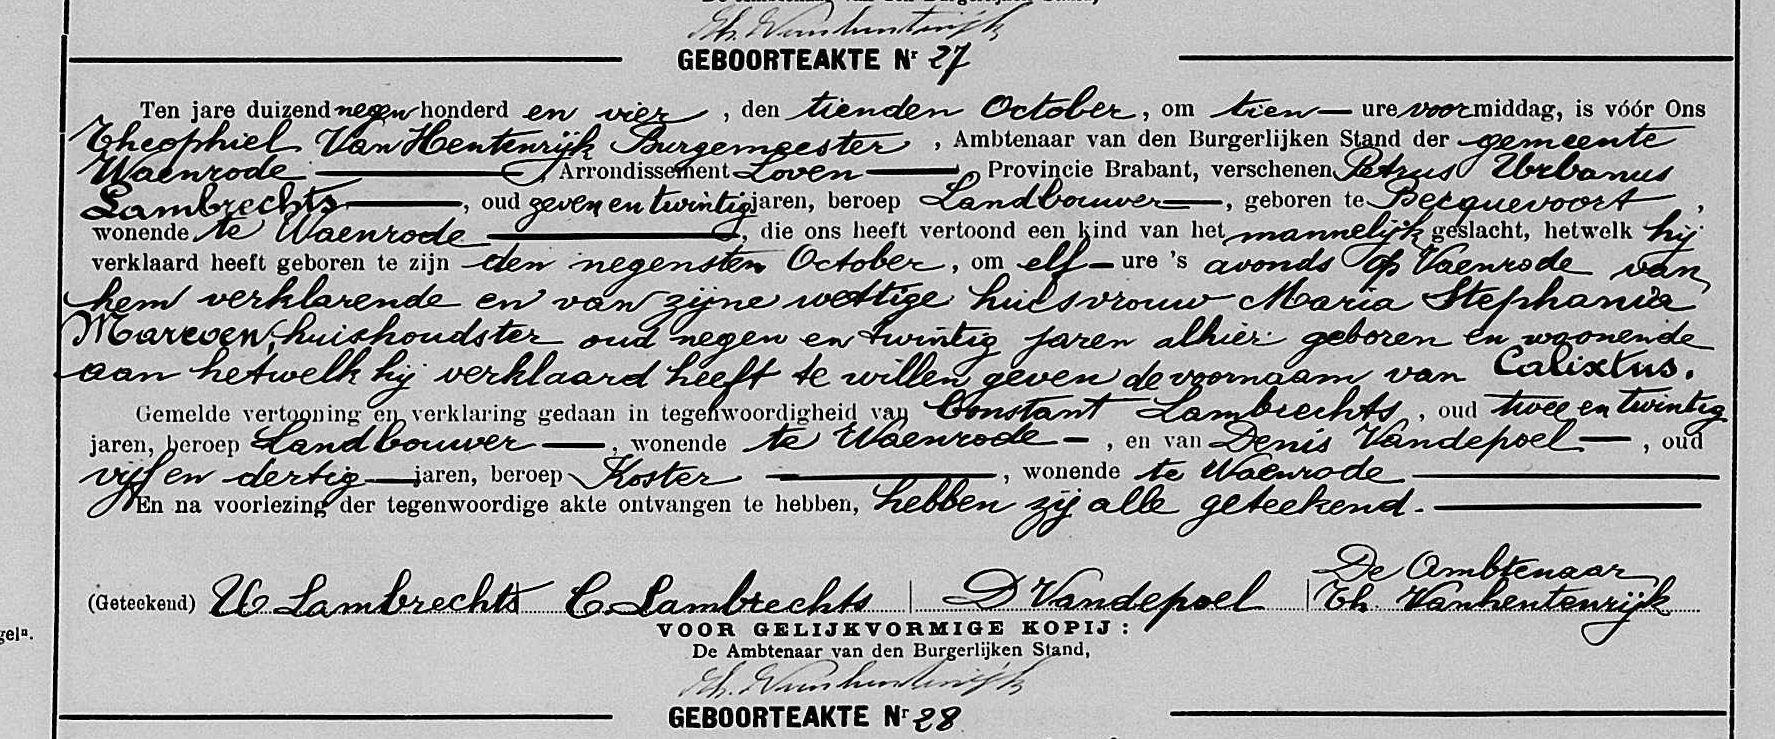 De Ambtenaar van den Burgerlijken Stand,
Th. Vanhentenrijk
GEBOORTEAKTE Nr 27
Ten jare duizend negen honderd en vier , den tienden October , om tien — ure voormiddag, is vóór Ons
Theophiel Van Hentenrijk Burgemeester , Ambtenaar van den Burgerlijken Stand der gemeente
Waenrode — , Arrondissement Loven — , Provincie Brabant, verschenen Petrus Urbanus
Lambrechts — , oud zeven en twintig jaren, beroep Landbouwer — , geboren te Becquevoort ,
wonende te Waenrode — , die ons heeft vertoond een kind van het mannelijk geslacht, hetwelk hij
verklaard heeft geboren te zijn den negensten October , om elf — ure 's avonds op Waenrode van
hem verklarende en van zijne wettige huisvrouw Maria Stephania
Mareven, huishoudster oud negen en twintig jaren alhier geboren en woonende
aan hetwelk hij verklaard heeft te willen geven de voornaam van Calixtus.
Gemelde vertooning en verklaring gedaan in tegenwoordigheid van Constant Lambrechts , oud twee en twintig
jaren, beroep Landbouwer — , wonende te Waenrode — , en van Denis Vandepoel — , oud
vijf en dertig — jaren, beroep Koster — , wonende te Waenrode —
En na voorlezing der tegenwoordige akte ontvangen te hebben, hebben zij alle geteekend. —
(Geteekend) U Lambrechts C. Lambrechts | D Vandepoel | De Ambtenaar
Th. Vanhentenrijk
VOOR GELIJKVORMIGE KOPIJ :
De Ambtenaar van den Burgerlijken Stand,
Th. Vanhentenrijk
GEBOORTEAKTE Nr 28